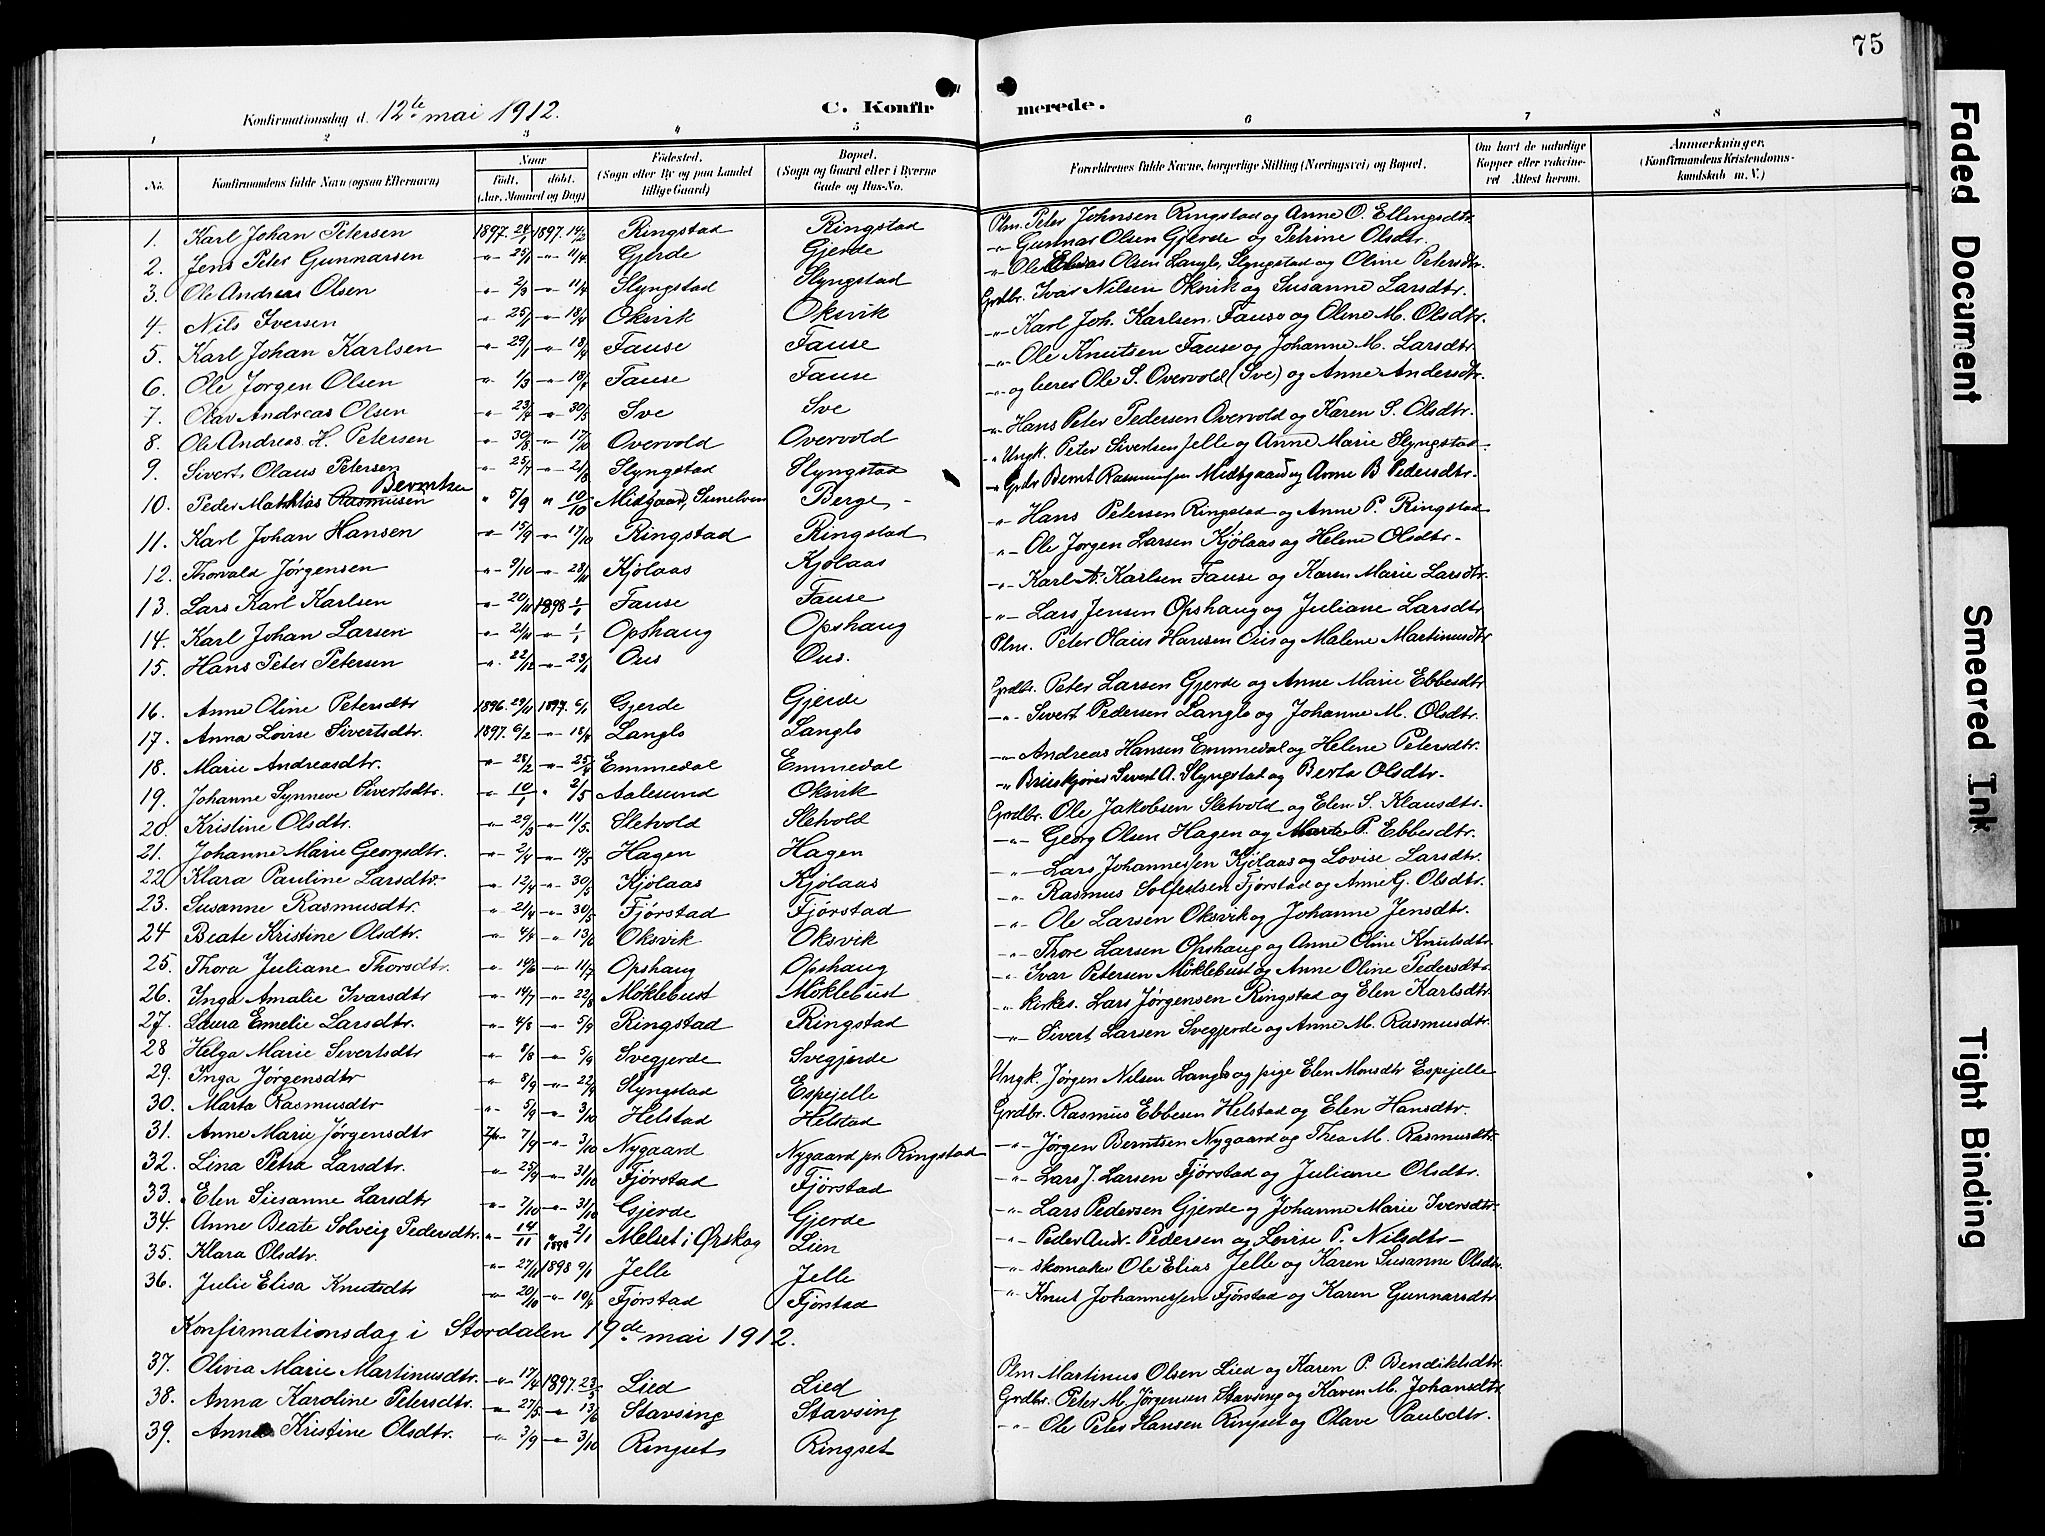 75
Konfirmationsdag d. 12te mai 1912.
C. Konfirmerede.
1 2 3 4 5 6 7 8
No. Konfirmandens fulde Navn (ogsaa Efternavn) Naar Født. døbt. (Aar, Maaned og Dag) Fødested. (Sogn eller By og paa Landet tillige Gaard) Bopæl. (Sogn og Gaard eller i Byerne Gade og Hus-No. Forældrenes fulde Navne, borgerlige Stilling (Næringsvei) og Bopæl. Om havt de naturlige Kopper eller vakcineret Attest herom. Anmærkninger. (Konfirmandens Kristendomskundskab m. V.)
1. Karl Johan Petersen 1897. 24/1 1897. 14/2 Ringstad Ringstad Plm. Peter Johnsen Ringstad og Anne O. Ellingsdtr.
2. Jens Peter Gunnarsen -"- 25/1 -"- 11/4 Gjerde Gjerde -"- Gunnar Olsen Gjerde og Petrine Olsdtr.
3. Ole Andreas Olsen -"- 2/3 -"- 11/4 Slyngstad Slyngstad -"- Ole Olsen Langlo, Slyngstad og Oline Petersdtr.
4. Nils Iversen -"- 25/1 -"- 18/4 Oksvik Oksvik Grdbr. Ivar Nilsen Oksvik og Susanne Larsdtr.
5. Karl Johan Karlsen -"- 29/1 -"- 18/4 Fause Fause -"- Karl Joh. Karlsen Fause og Oline M. Olsdtr.
6. Ole Jørgen Olsen -"- 1/3 -"- 18/4 Fause Fause -"- Ole Knutsen Fause og Johanne M. Larsdtr.
7. Olav Andreas Olsen -"- 23/4 -"- 30/5 Sve Sve -"- og lærer Ole S. Overvold (Sve) og Anne Andersdtr.
8. Ole Andreas H. Petersen -"- 30/8 -"- 17/10 Overvold Overvold -"- Hans Peter Pedersen Overvold og Karen S. Olsdtr.
9. Sivert Olaus Petersen -"- 25/7 -"- 21/8 Slyngstad Slyngstad -"- Ungk. Peter Sivertsen Jelle og Anne Marie Slyngstad
10. Peder Mathias Rasmusen " 5/9 " 10/10 Midgaard, Sunelven Berge -"- Grdbr Bernt Rasmussen Midtgaard og Anne B Pedersdtr.
11. Karl Johan Hansen -"- 15/9 -"- 17/10 Ringstad Ringstad -"- Hans Petersen Ringstad og Anne P. Ringstad
12. Thorvald Jørgensen -"- 9/10 -"- 28/11 Kjølaas Kjølaas -"- Ole Jørgen Larsen Kjølaas og Helene Olsdtr.
13. Lars Karl Karlsen -"- 20/11 1898 1/1 Fause Fause -"- Karl A. Karlsen Fause og Karen Marie Larsdtr.
14. Karl Johan Larsen -"- 21/11 -"- 1/1 Opshaug Opshaug -"- Lars Jensen Opshaug og Juliane Larsdtr
15. Hans Peter Petersen -"- 22/12 -"- 23/1 Ous Ous. Plm. Peter Olaus Hansen Ous og Malene Martinusdtr
16. Anne Oline Petersdtr 1896. 29/11 1897. 6/1 Gjerde Gjerde Grdbr. Peter Larsen Gjerde og Anne Marie Ebbesdtr
17. Anna Lovise Sivertsdtr. 1897. 6/2 -"- 18/4 Langlo Langlo -"- Sivert Pedersen Langlo og Johanne M. Olsdtr.
18. Marie Andreasdtr. -"- 28/2 -"- 25/4 Emmedal Emmedal -"- Andreas Hansen Emmedal og Helene Petersdtr.
19. Johanne Synneve Sivertsdtr. -"- 10/1 " 2/5 Aalesund Oksvik -"- Sivert A. Slyngstad og Berta Olsdtr.
20. Kristine Olsdtr. -"- 29/3 -"- 11/5. Sletvold Sletvold Grdbr. Ole Jakobsen Sletvold og Elen S. Klausdtr.
21. Johanne Marie Georgsdtr. -"- 2/4 -"- 14/5 Hagen Hagen -"- Georg Olsen Hagen og Marte P. Ebbesdtr.
22 Klara Pauline Larsdtr. -"- 12/4 -"- 30/5 Kjølaas Kjølaas -"- Lars Johannessen Kjølaas og Lovise Larsdtr.
23. Susanne Rasmusdtr. -"- 21/4 -"- 30/5 Fjørstad Fjørstad -"- Rasmus Solfestsen Fjørstad og Anne G. Olsdtr.
24 Beate Kristine Olsdtr. -"- 4/4 -"- 13/6 Oksvik Oksvik -"- Ole Larsen Oksvik og Johanne Jensdtr.
25. Thora Juliane Thorsdtr. -"- 14/6 -"- 11/7 Opshaug Opshaug -"- Thore Larsen Opshaug og Anne Oline Knutsdtr.
26. Inga Amalie Ivarsdtr -"- 14/7 -"- 22/8 Møklebust Møklebust -"- Ivar Petersen Møklebust og Anne Oline Pedersdtr.
27. Laura Emelie Larsdtr. -"- 4/8 -"- 5/9 Ringstad Ringstad -"- kirkes. Lars Jørgensen Ringstad og Elen Karlsdtr.
28 Helga Marie Sivertsdtr -"- 8/8 -"- 5/9 Svegjerde Svegjerde -"- Sivert Larsen Svegjerde og Anne M. Rasmusdtr.
29. Inga Jørgensdtr -"- 8/9 -"- 22/9 Slyngstad Espejelle Ungk. Jørgen Nilsen Langlo og pige Elen Monsdtr Espejelle
30. Marta Rasmusdtr -"- 5/9 -"- 3/10 Helstad Helstad Grdbr. Rasmus Ebbesen Helstad og Elen Hansdtr.
31. Anne Marie Jørgensdtr 7/9 -"- 3/10 Nygaard Nygaard pr. Ringstad -"- Jørgen Berntsen Nygaard og Thea M. Rasmusdtr.
32. Lina Petra Larsdtr. -"- 25/9 -"- 31/10 Fjørstad Fjørstad -"- Lars J. Larsen Fjørstad og Juliane Olsdtr.
33. Elen Susanne Larsdtr -"- 7/10 -"- 31/10 Gjerde Gjerde -"- Lars Pedersen Gjerde og Johanne Marie Iversdtr.
34. Anne Beate Solveig Pedersdtr. -"- 14/11 1898 2/1 Melset i Ørskog Lien -"- Peder Andr. Pedersen og Lovise P. Nilsdtr
35. Klara Olsdtr. -"- 27/11 1898 9/1 Jelle Jelle -"- skomaker Ole Elias Jelle og Karen Susanne Olsdtr.
36. Julie Elisa Knutsdtr -"- 20/10 -"- 10/4 Fjørstad Fjørstad -"- Knut Johannessen Fjørstad og Karen Gunnarsdtr
Konfirmationsdag i Stordalen 19de mai 1912.
37. Olivia Marie Martinusdtr. -"- 17/4 1897. 23/5 Lied Lied Plm Martinus Olsen Lied og Karen P. Bendiktsdtr.
38. Anna Karoline Petersdtr. -"- 27/5. -"- 13/6 Stavsing Stavsing Grdbr. Peter M. Jørgensen Stavsing og Karen M. Johansdtr
39. Anna Kristine Olsdtr. -"- 3/9 -"- 3/10 Ringset Ringset -"- Ole Peter Hansen Ringset og Olave Paulsdtr.
Faded Document
Smeared Ink
Tight Binding